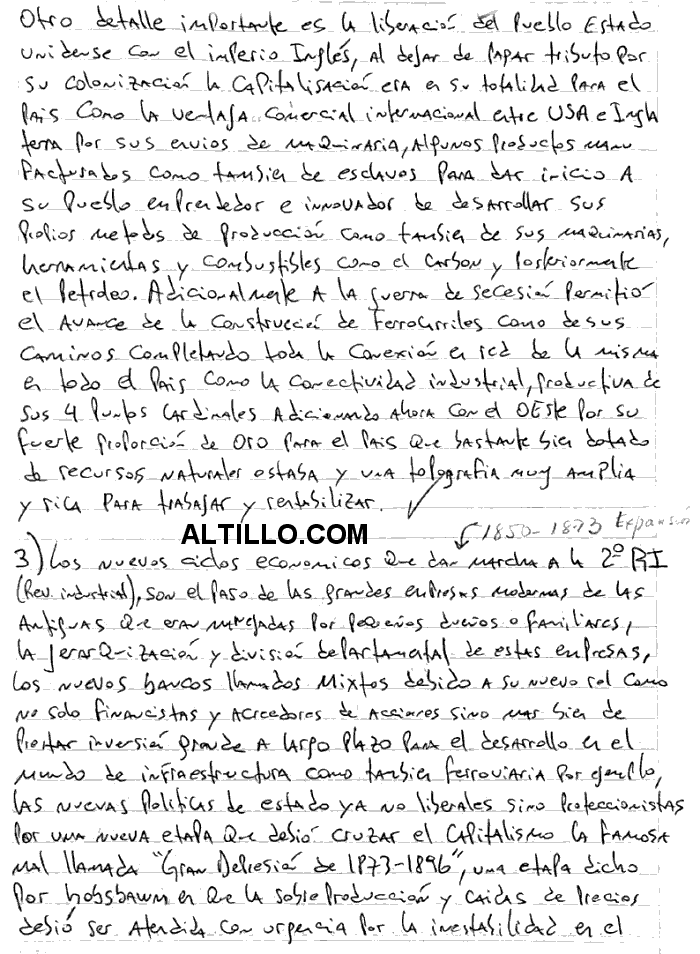 Otro detalle importante es la liberación del Pueblo Estado
unidense con el imperio Inglés, al dejar de pagar tributo por
su colonización la capitalisación era en su totalidad para el
País como la ventaja comercial internacional entre USA e Ingla
terra por sus envios de maquinaria, algunos productos manu
facturados como también de esclavos para dar inicio a
su pueblo emprendedor e innovador de desarrollar sus
propios metodos de producción como también de sus maquinarias,
herramientas y combustibles como el carbon y posteriormente
el petroleo. Adicionalmente a la guerra de secesión permitió
el avance de la construcción de ferrocarriles como de sus
caminos completando toda la conexión en red de la misma
en todo el país como la conectividad industrial, productiva de
sus 4 puntos cardinales adicionando ahora con el OEste por su
fuerte proporción de oro para el país que bastante bien dotado
de recursos naturales estaba y una topografia muy amplia
y rica para trabajar y rentabilizar.
ALTILLO.COM
1850-1873 Expansión
3) Los nuevos ciclos economicos que dan marcha a la 2º RI
(Rev. industrial), son el paso de las grandes empresas modernas de las
antiguas que eran manejadas por pequeños dueños o familiares,
la jerarquización y división departamental de estas empresas,
los nuevos bancos llamados Mixtos debido a su nuevo rol como
no solo financistas y acreedores de acciones sino mas bien de
prestar inversión grande a largo plazo para el desarrollo en el
mundo de infraestructura como también ferroviaria por ejemplo,
las nuevas politicas de estado ya no liberales sino proteccionistas
por una nueva etapa que debió cruzar el capitalismo la famosa
mal llamada "Gran Depresión de 1873-1896", una etapa dicho
por hobsbawm en que la sobreproducción y caidas de precios
debió ser atendida con urgencia por la inestabilidad en el